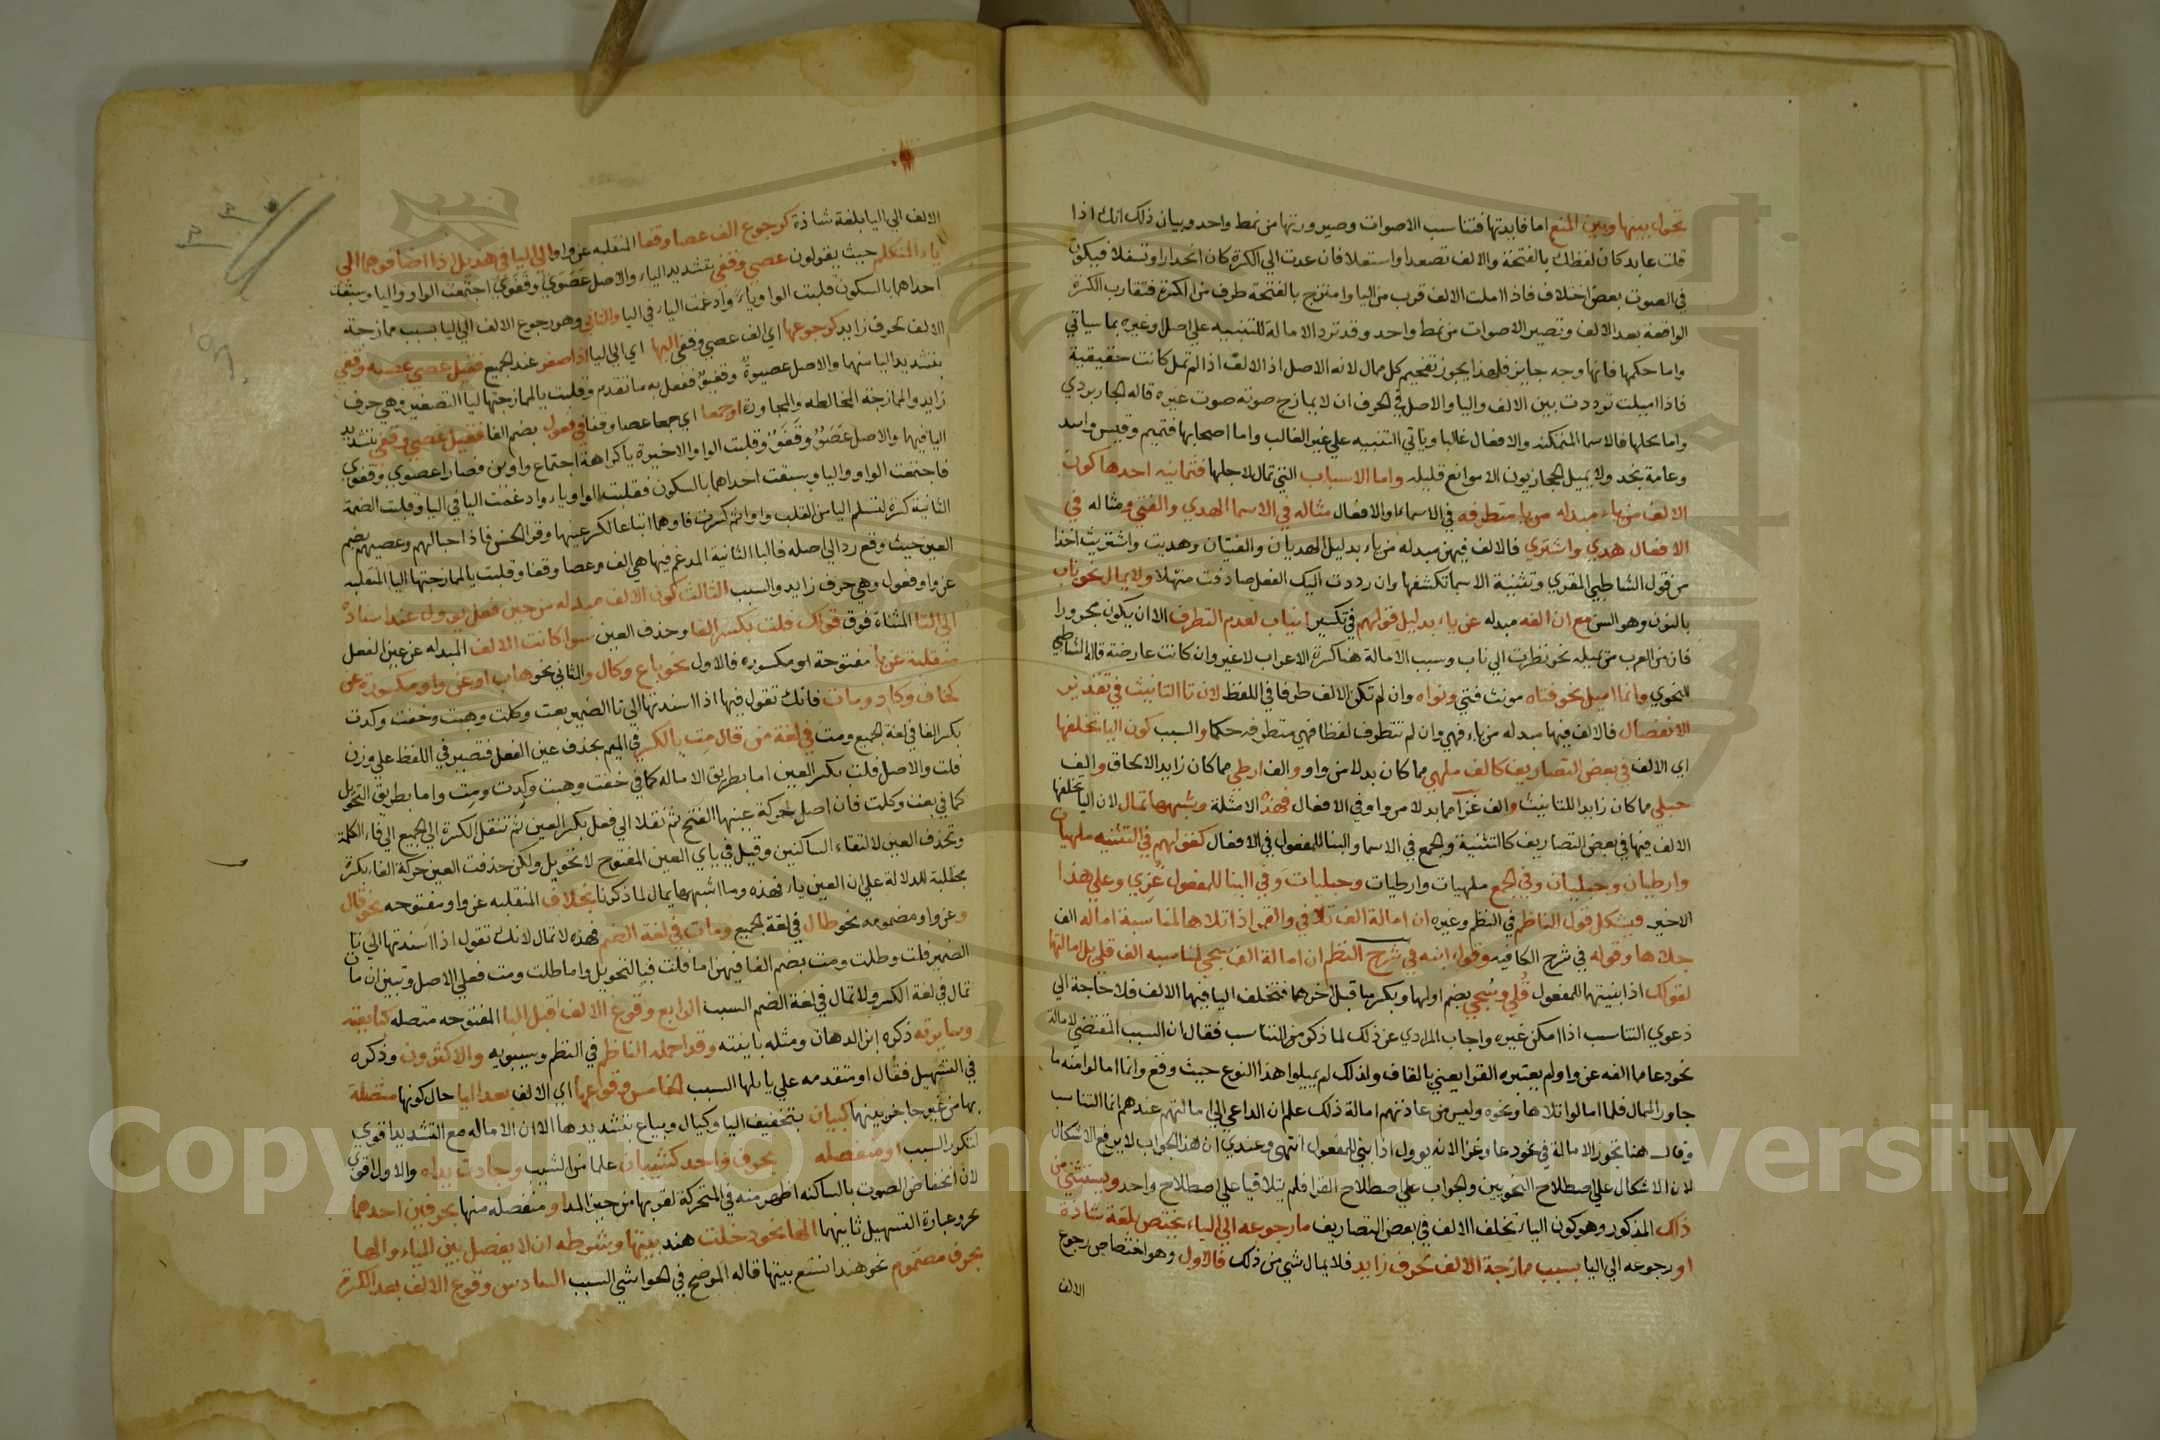 تحول بينها وبين المنع اما فايدتها فتناسب الاصوات وصيرورتها من نمط واحد وبيان ذلك انك اذا
قلت عابد كان لفظك بالفتحة والالف تصعدا واستعلا فان عدت الي الكسرة كان انحدارا وتسفلا فيكون
في الصوت بعض اختلاف فاذا املت الالف قرب من اليا وامتزج بالفتحة طرف من الكسرة فتقارب الكسرة
الواقعة بعد الالف وتصير الاصوات من نمط واحد وقد ترد الامالة للتنبيه علي اصل وغيره بما سياتي
واما حكمها فانها وجه جايز فلهذا يجوز تفخيم كل ممال لانه الاصل اذ الالف اذا لم تمل كانت حقيقية
فاذا اميلت ترددت بين الالف واليا والاصل في الحرف ان لا يمازج صوته صوت غيره قاله الجاربردي
واما محلها فالاسما المتمكنه والافعال غالبا وياتي التنبيه علي غير الغالب واما اصحابها فتميم وقيس واسد
وعامة نجد ولا يميل الحجازيون الا مواضع قليله واما الاسباب التي تمال لاجلها فثمانيه احدها كون
الالف من ياء مبدله من ياء متطرفه في الاسماء او الافعال مثاله في الاسما الهدي والفتي ومثاله في
الافعال هدي واشتري فالالف فيهن مبدله من ياء بدليل الهديان والفتيان وهديت واشتريت اخذا
من قول الشاطبي المقري وتثنية الاسما تكشفها وان رددت اليك الفعل صادفت منهلا ولا يمال نحو ناب
بالنون وهو السن مع ان الفه مبدله عن ياء بدليل قولهم في تكسير انياب لعدم التطرف الا ان يكون مجرورا
فان من العرب من يميله نحو نظرت الي ناب وسبب الامالة هنا كسرة الاعراب لا غير وان كانت عارضة قاله الشاطبي
النحوي وانما اميل نحو فتاه مونث فتي ونواه وان لم تكن الالف طرفا في اللفظ لان تا التانيث في تقدير
الانفصال فالالف فيها مبدله من ياء فهي وان لم تتطرف لفظا فهي متطرفه حكما والسبب كون اليا تخلفها
اي الالف في بعض التصاريف كالف ملهي مما كان بدلا من واو والف ارطي مما كان زايد الالحاق والف
حبلي مما كان زايدا للتانيث والف غزا مما بدلا من واو في الافعال فهذه الامثلة وشبهها تمال لان اليا تخلفها
الالف فيها في بعض التصاريف كالتثنية والجمع في الاسما والبنا للمفعول في الافعال كقولهم في التثنيه ملهيان
وارطيان وحبليان وفي الجمع ملهيات وارطيات وحبليات وفي البنا للمفعول غزي وعلي هذا
الاخير فيشكل قول الناظم في النظم وغيره ان امالة الف تلا في والقمر اذا تلاها لمناسبة اماله الف
جلاها وقوله في شرح الكافيه وقول ابنه في شرح النظم ان امالة الف سجي لمناسبه الف قلي بل امالتها
لقولك اذا بنيتها للمفعول قلي وسجي بضم اولها وبكسر ما قبل اخرهما فتخلف اليا فيها الالف فلا حاجة الي
دعوي التناسب اذا امكن غيره واجاب المرادي عن ذلك لما ذكر من التناسب فقال ان السبب المقتضي لامالة
نحو دعا مما الفه عن واو لم يعتبره القرا يعني بالقاف ولذلك لم يميلوا هذا النوع حيث وقع وانما امالوا منه ما
جاور الممال فلما امالوا تلاها ونحوه وليس من عادتهم امالة ذلك علم ان الداعي الي امالتهم عندهم انما التناسب
وقال هنا تجوز الامالة في نحو دعا وغزا لانه يوول اذا بني للمفعول انتهي وعندي ان هذا الجواب لا يرفع الاشكال
لان الاشكال علي اصطلاح النحويين والجواب علي اصطلاح القرا فلم يتلاقيا علي اصطلاح واحد ويستثني من
ذلك المذكور وهو كون الياء تخلف الالف في بعض التصاريف ما رجوعه الي الياء يختص بلغة شاذة
او رجوعه الي اليا بسبب ممازجة الالف بحرف زايد فلا يمال شي من ذلك فالاول وهو اختصاص رجوع
الالف
الالف الي اليا بلغة شاذة كرجوع الف عصا وقفا المنقلبه عن واو الي اليا في هذيل اذا اضافوهما الي
ياء المتكلم حيث يقولون عصي وقفي بتشديد الياء والاصل عصوي وقفوي اجتمعت الواو واليا وسبقت
احداهما بالسكون قلبت الواو ياء وادغمت الياء في اليا والثاني وهو رجوع الالف الي اليا بسبب ممازجة
الالف بحرف زايد كرجوعها اي الف عصي وقفي اليها اي الي اليا اذا صغر عند الجميع فقيل عصي عصيه وقفي
بتشديد اليا منهما والاصل عصيوة وقفيو ففعل به ما تقدم وقلبت يا لممازجتها ليا التصغير وهي حرف
زايد والممازجة المخالطه والمجاورة او جمعا اي جمعا عصا وقفا في فعول بضم الفا فقيل عصي وقفي بتشديد
اليا فيهما والاصل عصوو وقفوو وقلبت الواو الاخيرة يا كراهة اجتماع واوين فصارا عصوي وقفوي
فاجتمعت الواو واليا وسبقت احداهما بالسكون فقلبت الواو ياء وادغمت اليا في اليا وقلبت الضمة
الثانية كسرة لتسلم اليا من القلب واوا ثم كسرت فاوهما اتباعا لكسر عينها وقرا الحسن فاذا حبالهم وعصيهم بضم
العين حيث وقع ردا الي اصله فاليا الثانية المدغم فيها هي الف وعصا وقفا وقلبت يا لممازجتها اليا المنقلبه
عن واو فعول وهي حرف زايد والسبب الثالث كون الالف مبدله من عين فعل يوول عند اسناده
الي التا المثناة فوق قولك فلت بكسر الفا وحذف العين سوا كانت الالف المبدله عن عين الفعل
منقلبة عن يا مفتوحة او مكسوره فالاول نحو باع وكال والثاني نحو هاب او عن واو مكسورة عن
كخاف وكاد ومات فانك تقول فيها اذا اسندتها الي تا الضمير بعت وكلت وهبت وخفت وكدت
بكسر الفا في لغة الجميع ومت في لغة من قال مت بالكسر في الميم بحذف عين الفعل فتصير في اللفظ علي وزن
فلت والاصل فلت بكسر العين اما بطريق الاماله كما في خفت وهبت وكدت ومت واما بطريق التحويل
كما في بعت وكلت فان اصل حركة عينها الفتح ثم نقلا الي فعل بكسر العين ثم تنقل الكسرة الي الجميع الي فاء الكلمة
وتحذف العين لالتقاء الساكنين وقيل في ياي العين المفتوح لا تحويل ولكن حذفت العين حركة الفاء بكسرة
مجتلبة للدلالة علي ان العين ياء فهذه وما اشبهها يمال لما ذكرنا بخلاف المنقلبه عن واو مفتوحه نحو قال
وعن واو مضمومه نحو طال في لغة الجميع ومات في لغة الضم فهذه لا تمال لانك تقول اذا اسندتها الي تا
الضمير قلت وطلت ومت بضم الفا فيهن اما قلت فبالتحويل واما طلت ومت فعلي الاصل وتبين ان مات
تمال في لغة الكسر ولا تمال في لغة الضم السبب الرابع وقوع الالف قبل اليا المفتوحه متصله كبايعته
وسايرته ذكره ابن الدهان ومثله بايعته وقد اهمله الناظم في النظم وسيبويه والاكثرون وذكره
في التسهيل فقال او متقدمه علي يا يليها السبب الخامس وقوعها اي الالف بعد اليا حال كونها متصلة
بها من غير حاجز بينهما كبيان بتخفيف اليا وكيال وبياع بتشديدها الا ان الاماله مع التشديد اقوي
لتكرر السبب او منفصله بحرف واحد كشيبان علما من الشيب وجادت يداه والاول اقوي
لان انخفاض الصوت بالساكنه اظهر منه في المتحركة لقربها من حيز المد او منفصله منها بحرفين احدهما
وعبارة التسهيل ثانيهما الها نحو دخلت هند بيتها وشرطه ان لا يفصل بين الياء والها
بحرف مضموم نحو هند اتسع بيتها قاله الموضح في الحواشي السبب السادس وقوع الالف بعد الكسرة
Copyright © King Saud University